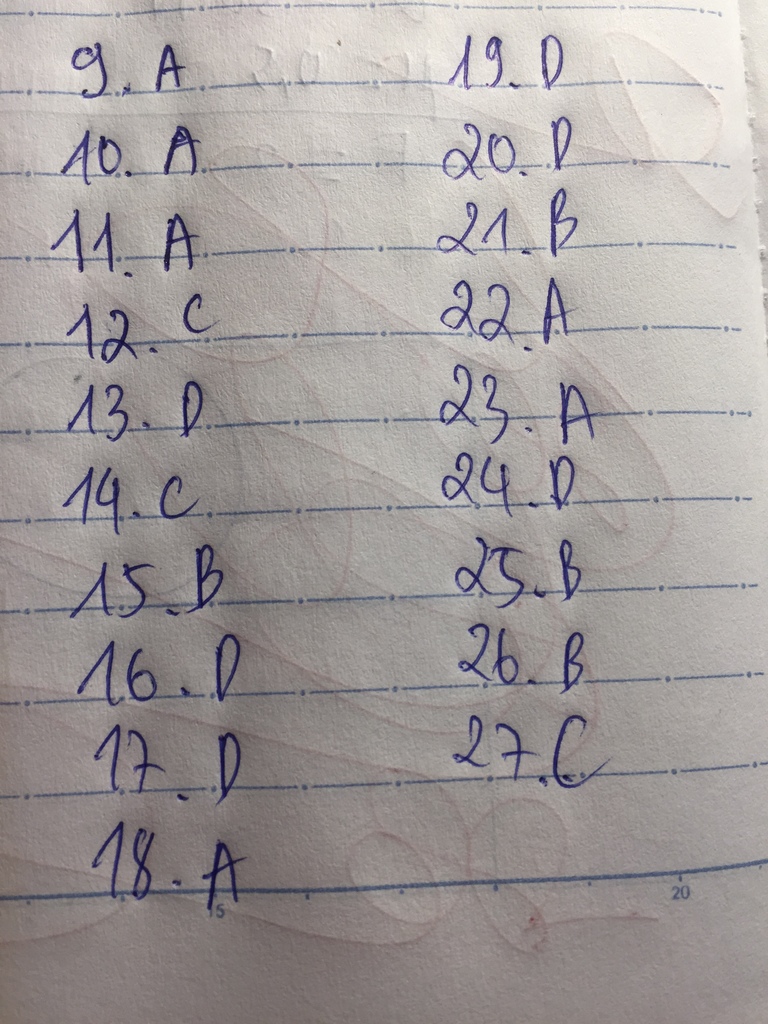 9. A
10. A
11. A
12. C
13. D
14. C
15. B
16. D
17. D
18. A
19. D
20. D
21. B
22. A
23. A
24. D
25. B
26. B
27. C
20